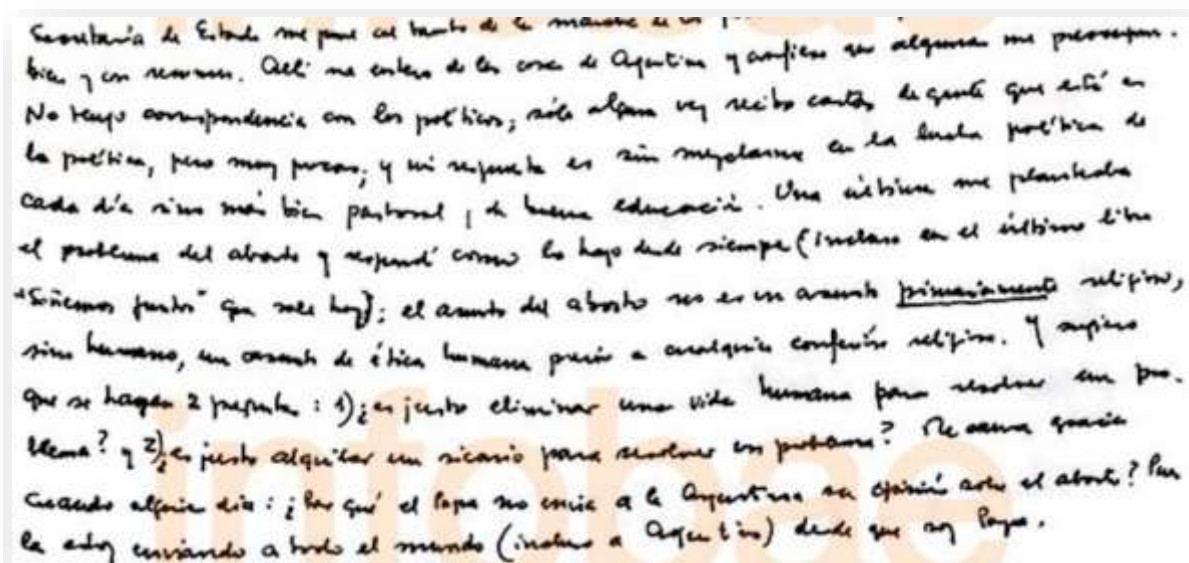 Secretaría de Estado me pone al tanto de la marcha de los
bien y con resumen. Allí me entero de las cosas de Argentina y confieso que algunas me preocupan.
No tengo correspondencia con los políticos; sólo alguna vez recibo cartas de gente que está en
la política, pero muy pocas; y mi respuesta es sin mezclarme en la lucha política de
cada día sino más bien pastoral, de buena educación. Una última me planteaba
el problema del aborto y respondí como lo hago desde siempre (incluso en el último libro
"Soñemos juntos" que sale hoy): el asunto del aborto no es un asunto primariamente religioso,
sino humano, un asunto de ética humana previo a cualquier confesión religiosa. Y sugiero
que se hagan 2 preguntas: 1) ¿es justo eliminar una vida humana para resolver un pro-
blema? y 2) ¿es justo alquilar un sicario para resolver un problema? Me causa gracia
cuando alguien dice: ¿Por qué el Papa no envía a la Argentina su opinión sobre el aborto? Pues
la estoy enviando a todo el mundo (incluso a Argentina) desde que soy Papa.
infobae